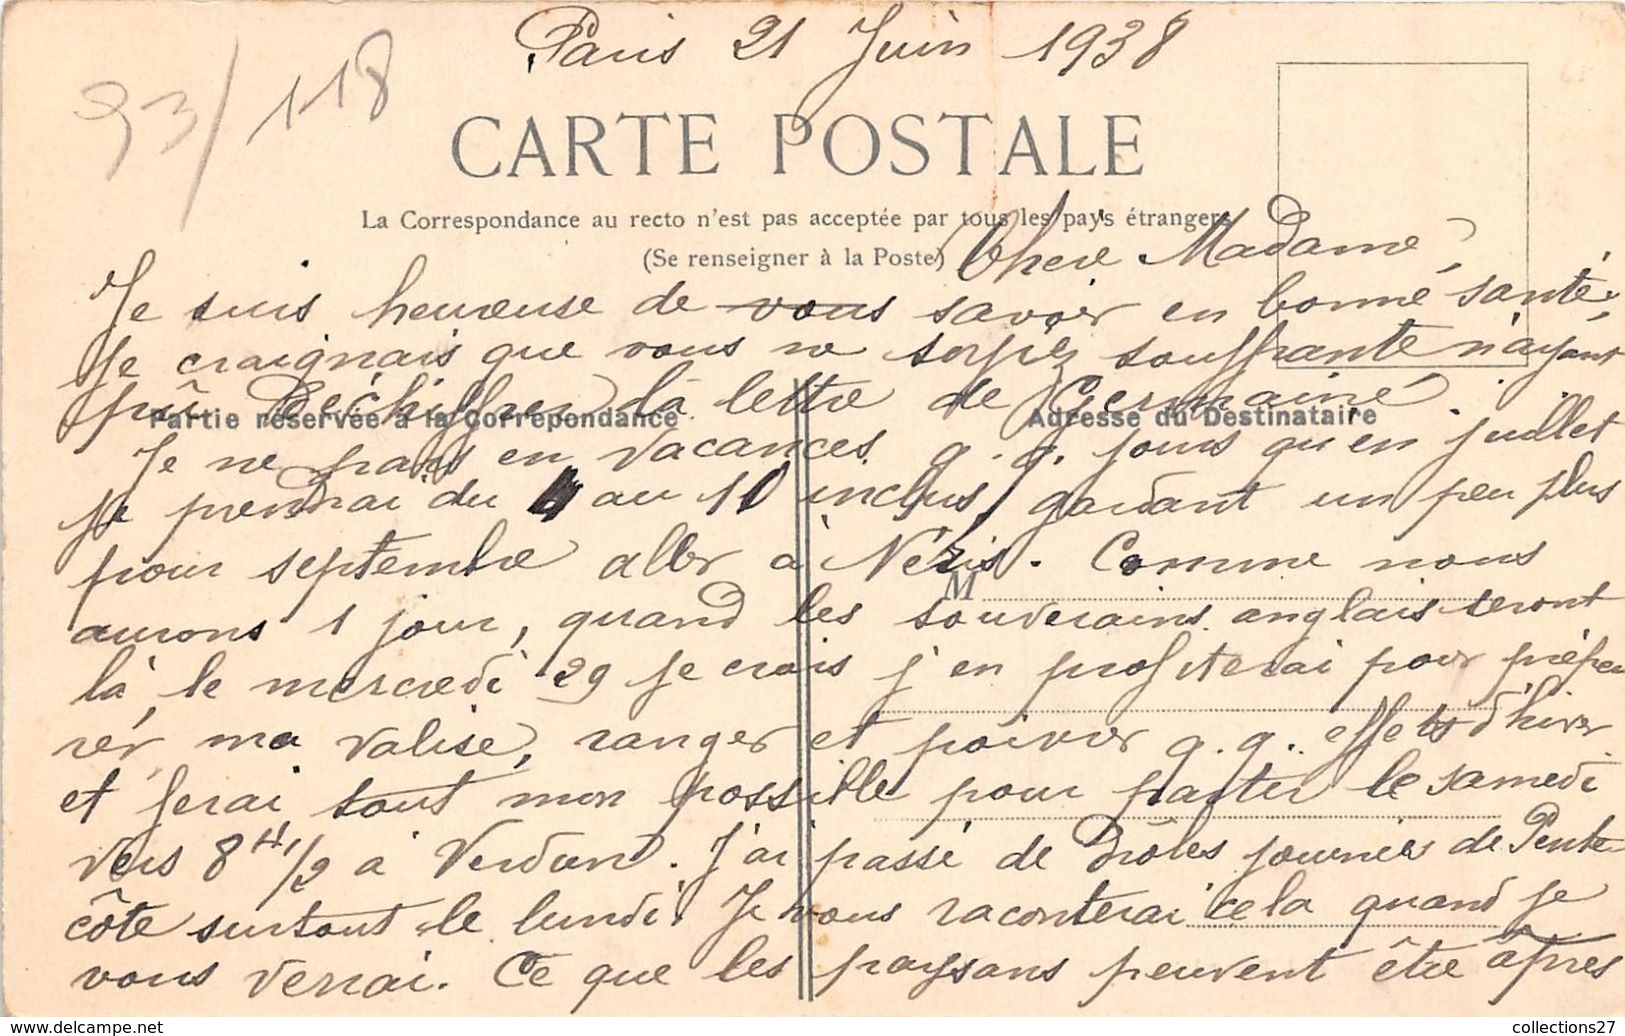 Paris 21 Juin 1938
93/118
CARTE POSTALE
La Correspondance au recto n'est pas acceptée par tous les pays étrangers
(Se renseigner à la Poste)
Chere Madame,
Je suis heureuse de vous savoir en bonne santé,
Je craignais que vous ne soyiez souffrante n'ayant
pû déchiffrer la lettre de Germaine.
Partie réservée à la Correpondance
Adresse du Destinataire
Je ne pars en vacances q.q. jours qu'en juillet
je prendrai du 4 au 10 inclus, gardant un peu plus
pour septembre aller à Néris. Comme nous
M
aurons 1 jour, quand les souverains anglais seront
là, le mercredi 29 je crois j'en profiterai pour prépa
rer ma valise, ranger et poivrer q.q. effets d'hiver
et ferai tout mon possible pour partir le samedi
vers 8H1/2 à Verdun. J'ai passé de drôles journées de Pente
côte surtout le lundi. Je vous raconterai cela quand je
vous verrai. Ce que les paysans peuvent être âpres
collections27